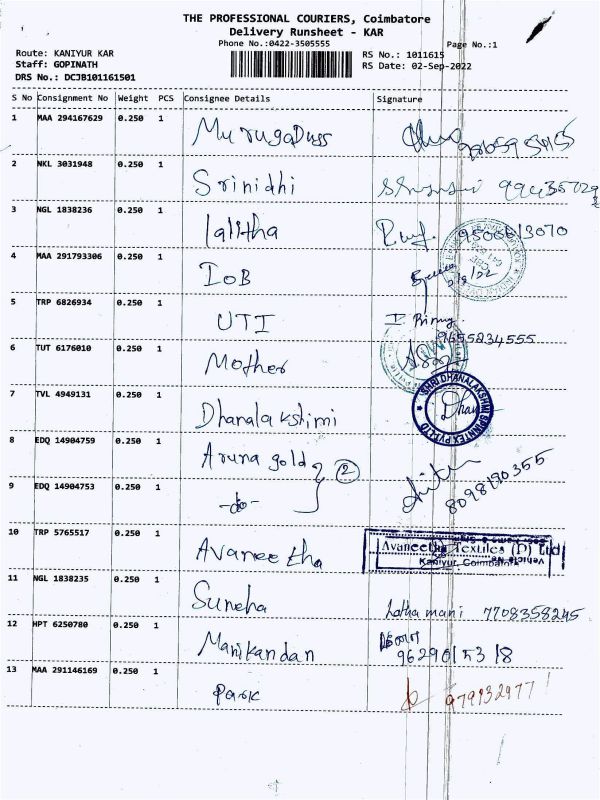 THE PROFESSIONAL COURIERS, Coimbatore
Delivery Runsheet - KAR
Phone No.:0422-3505555
Page No.:1
Route: KANIYUR KAR
RS No.: 1011615
Staff: GOPINATH
RS Date: 02-Sep-2022
DRS No.: DCJB101161501
S No Consignment No Weight PCS Consignee Details Signature
1 MAA 294167629 0.250 1 Murugaduss
2 NKL 3031948 0.250 1 Srinidhi
3 NGL 1838236 0.250 1 lalitha
4 MAA 291793306 0.250 1 IoB
5 TRP 6826934 0.250 1 UTI
9655234555
6 TUT 6176010 0.250 1 Mother
7 TVL 4949131 0.250 1 Dhanalakshimi
SHRI DHANALAKSHMI SPINNTEX PVT LTD
8 EDQ 14904759 0.250 1 Aruna gold
2
9 EDQ 14904753 0.250 1 -do-
8098190355
10 TRP 5765517 0.250 1 Avaneetha
Avaneetha Textiles (P) Ltd
Kaniyur, Coimbatore
11 NGL 1838235 0.250 1 Suneha
Latha mani 7708358245
12 HPT 6250780 0.250 1 Manikandan
9629015318
13 MAA 291146169 0.250 1 Paric